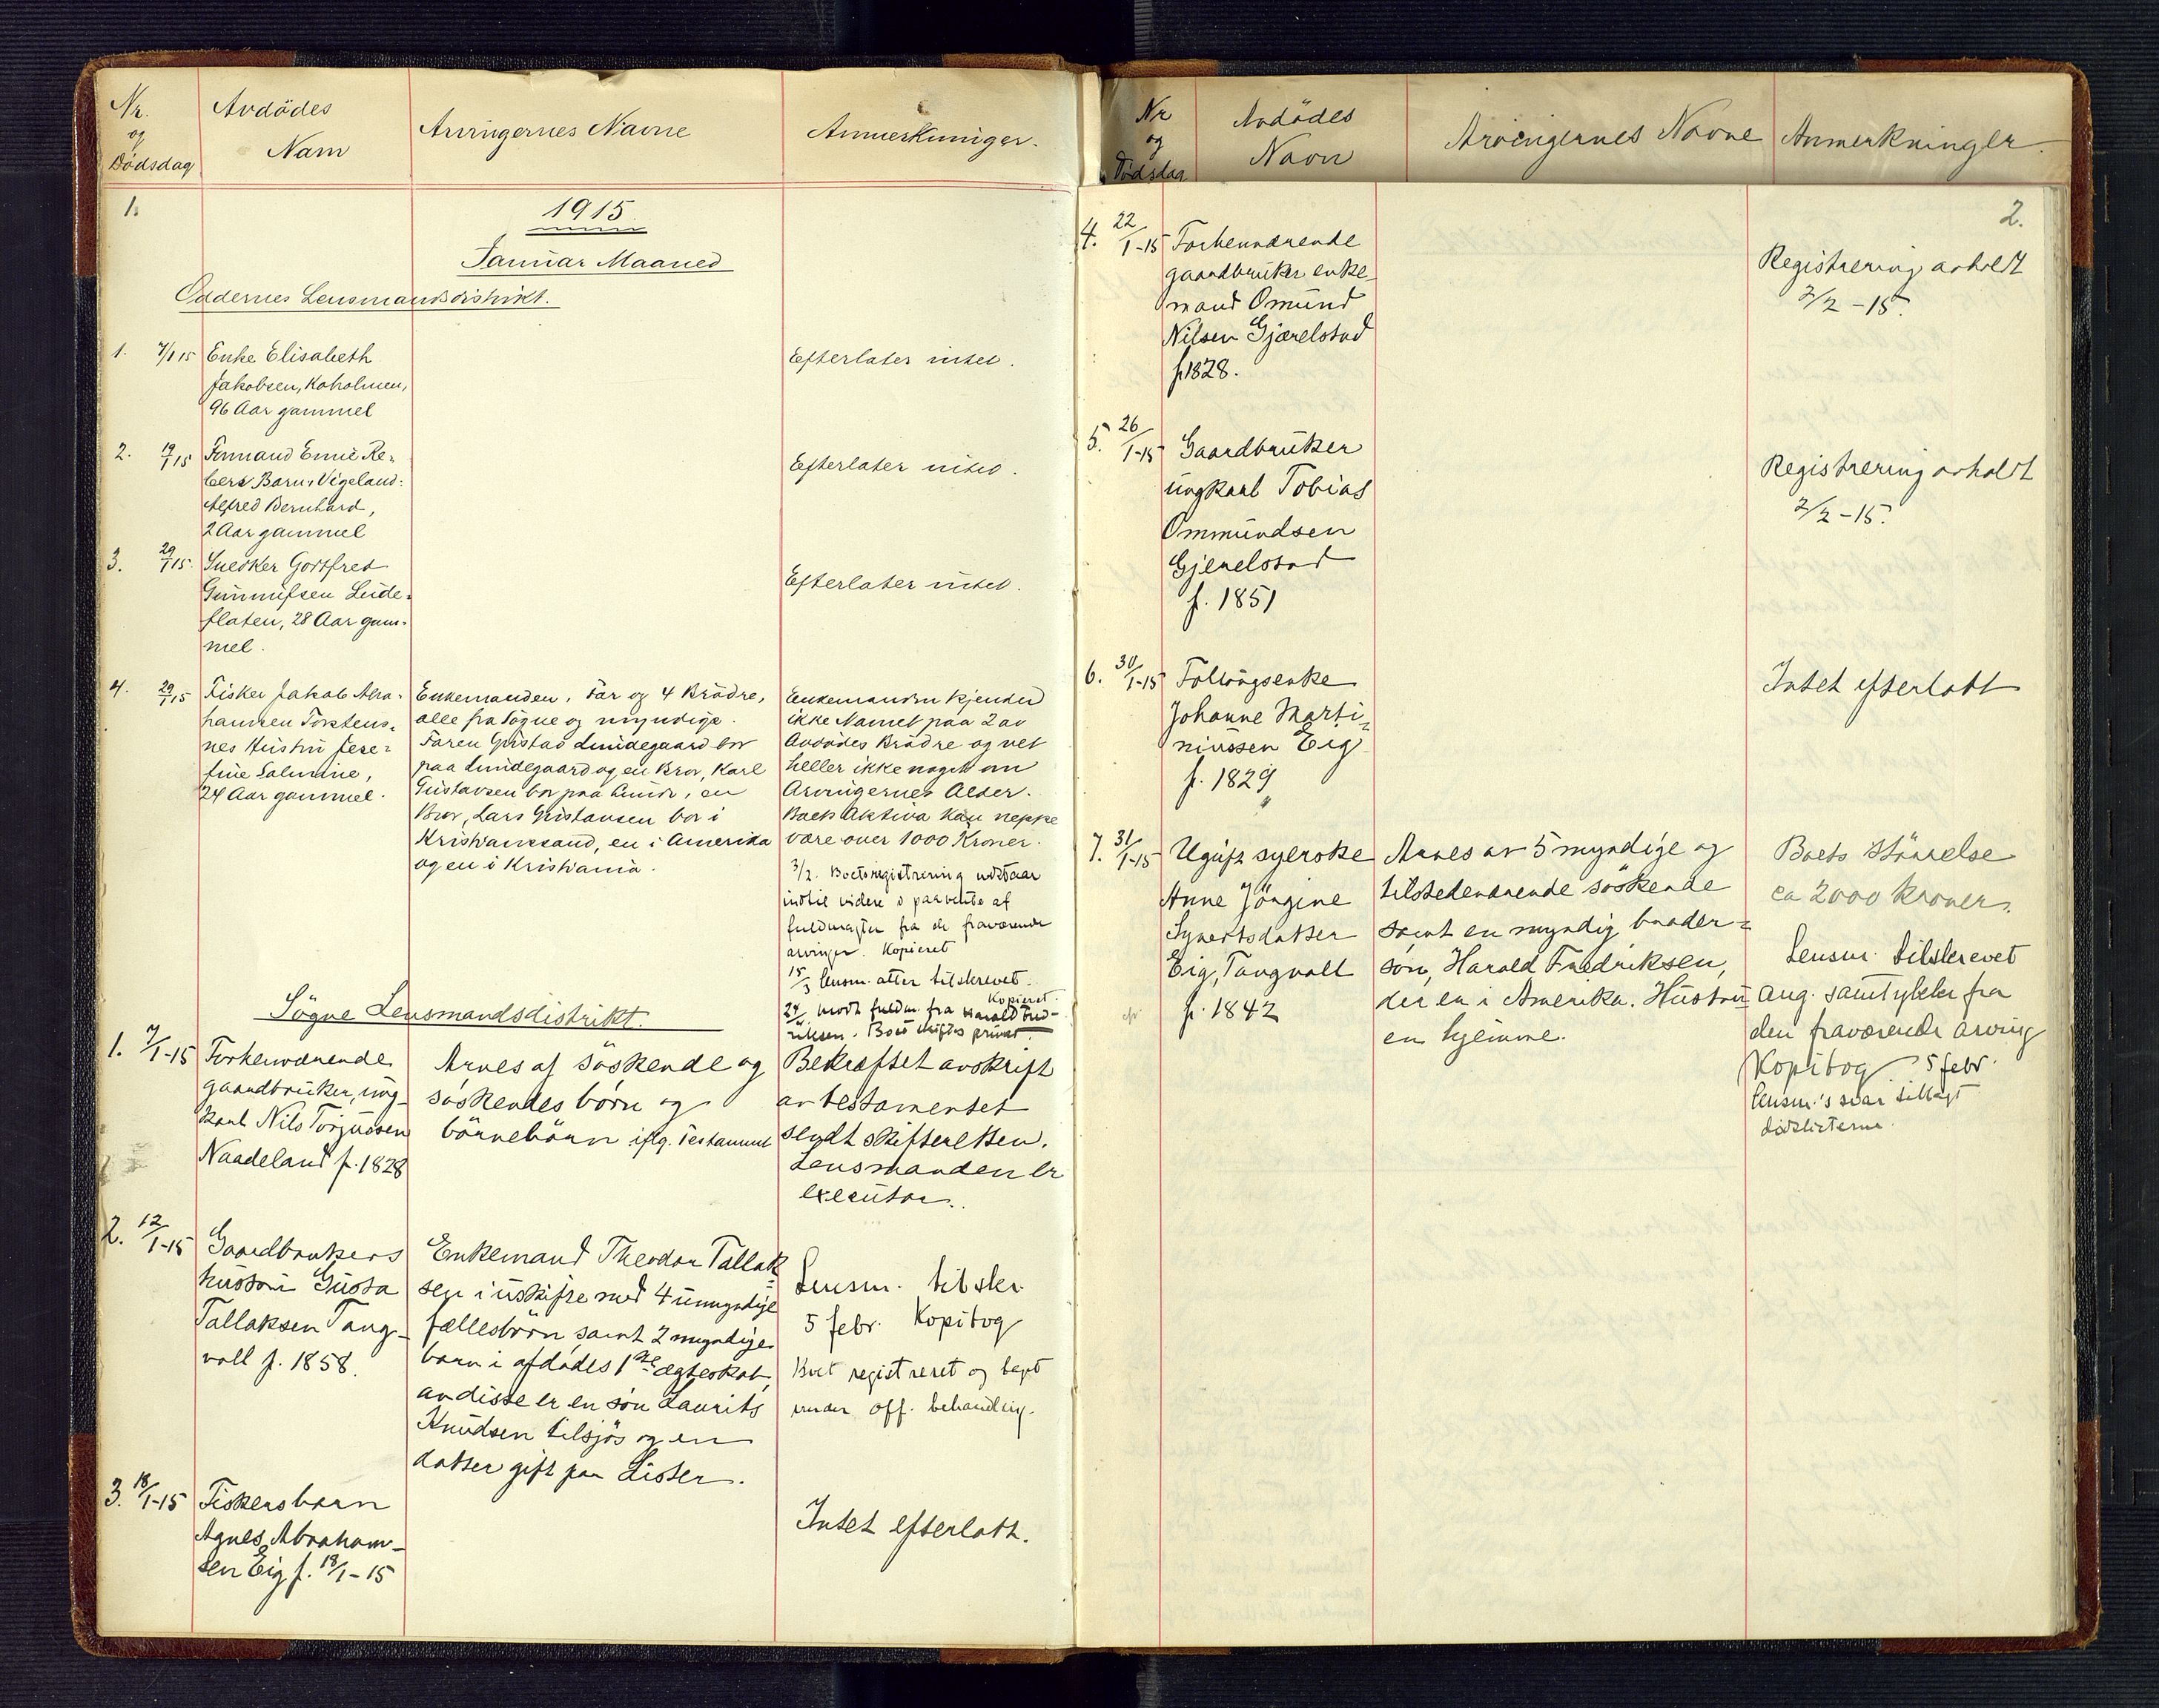 Nr.
og
Dödsdag
Avdödes
Navn
Arvingernes Navne
Anmerkninger.
1.
1915.
Januar Maaned
Oddernes Lensmandsdistrikt.
1. 7/1 15 Enke Elisabeth
Jakobsen, Kaholmen,
96 Aar gammel
Efterlater intet.
2. 19/1 15
bers Barn, Vigeland:
Alfred Bernhard,
2 Aar gammel
Efterlater intet.
3. 29/1 15. Snedker Gottfred
Gunnufsen Linde-
flaten, 28 Aar gam-
mel.
Efterlater intet.
4. 29/1 15 Fisker Jakob Abra-
hamsen Torstens-
nes Hustru Jere-
fine Salmine,
24 Aar gammel.
Enkemanden, Far og 4 Brödre,
alle fra Sögne og myndige.
Faren Gustav Lundegaard bor
paa Lundegaard og en Bror, Karl
Gustavsen bor paa Lunde, en
Bror, Lars Gustavsen bor i
Kristianssand, en i Amerika
og en i Kristiania.
Enkemanden kjender
ikke Navnet paa 2 av
Avdödes Brödre og vet
heller ikke noget om
Arvingernes Alder.
Boets Aktiva kan neppe
være over 1000 Kroner.
3/2. Boetsregistrering utstaar
indtil videre i paavente af
fuldmagter fra de fraværende
arvinger. Kopieret
15/3 lensm. atter tilskrevet.
Kopieret.
24/ modt. fuldm. fra Harald Fred-
riksen. Boet skiftes privat.
Sögne Lensmandsdistrikt.
1. 7/1-15 Forhenværende
gaardbruker, ung-
karl Nils Torjussen
Naadeland f. 1828
Arves af söskende og
söskendes börn og
börnebörn iflg. Testament
Bekræftet avskrift
av testamentet
sendt skifteretten.
Lensmanden er
executor.
2. 12/1-15 Gaardbrukers
hustru Gusta
Tallaksen Tang-
vall f. 1858.
Enkemand Theodor Tallak-
sen i uskifte med 4 umyndige
fællesbörn, samt 2 myndige
barn i afdödes 1ste ægteskab,
av disse er en sön Laurits
Knudsen tilsjös og en
datter gift paa Lister.
Lensm. tilskr.
5 febr. Kopibog
Boet registreret og tagt
under off. behandling.
3. 18/1-15 Fiskersbarn
Agnes Abraham-
sen Eig f. 18/1-15
Intet efterlatt.
Nr
og
Dödsdag
Avdödes
Navn
Arvingernes Navne
Anmerkninger.
2.
4. 22/1-15 Forhenværende
gaardbruker enke-
mand Omund
Nilsen Gjærelstad
f. 1828.
Registrering avholdt
2/2-15.
5. 26/1-15 Gaardbruker
ungkarl Tobias
Ommundsen
Gjerelstad
f. 1851
Registrering avholdt
2/2-15.
6. 30/1-15
Johanne Marti-
niussen Eig
f. 1829
Intet efterlatt
7. 31/1-15 Ugift syerske
Anne Jörgine
Syvertsdatter
Eig, Tangvall
f. 1842
Arves av 5 myndige og
tilstedeværende söskende
samt en myndig broder-
sön, Harald Fredriksen,
der er i Amerika. Hustru
en hjemme.
Boets störrelse
ca 2000 kroner.
Lensm. tilskrevet
ang. samtykke fra
den fraværende arving
Kopibog 5 febr.
lensm.'s svar tillagt
dödslisterne.